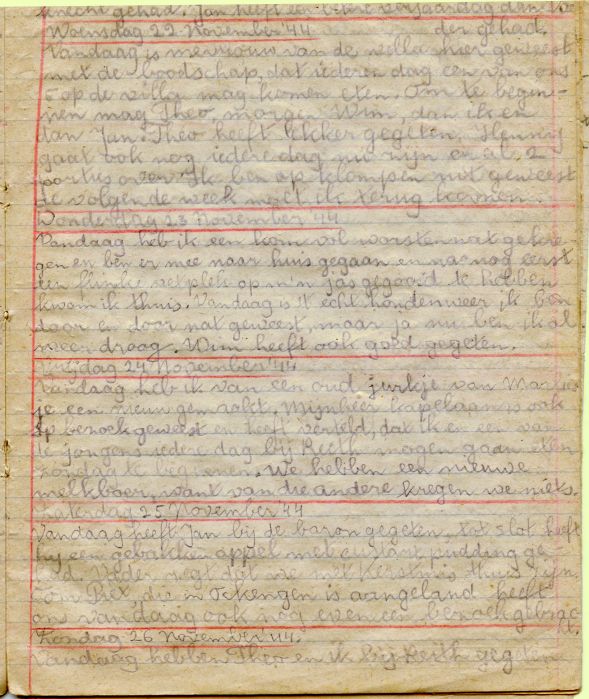 knecht gehad. Jan heeft een betere verjaardag dan
Woensdag 22 November '44 der gehad.
Vandaag is mevrouw van de villa hier geweest
met de boodschap, dat iedere dag een van ons
op de villa mag komen eten. Om te begin-
nen mag Theo, morgen Wim, dan ik en
dan Jan. Theo heeft lekker gegeten. Henny
gaat ook nog iedere dag nu zijn er al 2
porties over. Ik ben op klompen uit geweest
de volgende week moet ik terug komen.
Donderdag 23 November '44
Vandaag heb ik een kom vol worstennat gekre-
gen en ben er mee naar huis gegaan en na nog eerst
een flinke vetplek op m'n jas gegooid te hebben
kwam ik thuis. Vandaag is 't echt hondenweer ik ben
door en door nat geweest, maar ja nu ben ik al
weer droog. Wim heeft ook goed gegeten.
Vrijdag 24 November '44
Vandaag heb ik van een oud jurkje van
je een nieuw gemaakt. Mijnheer kapelaan is ook
op bezoek geweest en heeft verteld, dat ik en een van
de jongens iedere dag bij Reith mogen gaan eten
zondag te beginnen. We hebben een nieuwe
melkboer, want van die andere kregen we niets.
Zaterdag 25 November '44
Vandaag heeft Jan bij de baron gegeten, tot slot heeft
hij een gebakken appel met custard pudding ge-
had. Vader zegt dat we met kerstmis thuis zijn.
Oom Piet, die in is aangeland heeft
ons vandaag ook nog even een bezoek gebrac
ht.
Zondag 26 November '44.
Vandaag hebben Theo en ik bij Reith gegeten